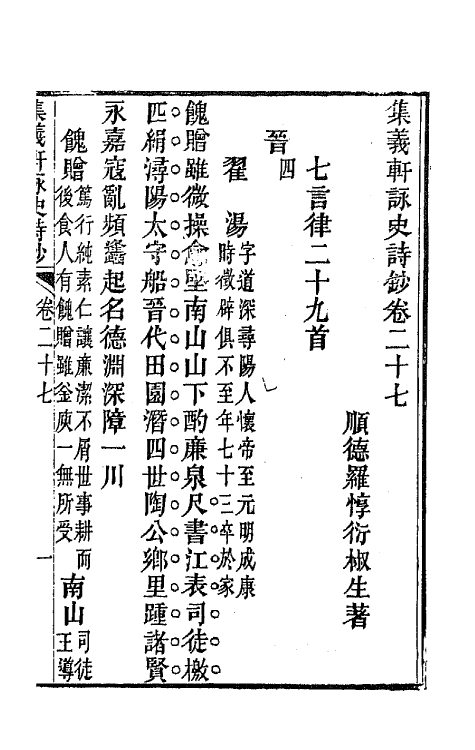 集義軒詠史詩鈔卷二十七
順德羅惇衍椒生著
七言律二十九首
晉四
翟湯
字道深尋陽人懷帝至元明成康
時徵辟俱不至年七十三卒於家
餽贈雖微操愈堅南山山下酌廉泉尺書江表司徒檄
匹絹潯陽太守船晉代田園潛四世陶公鄉里踵諸賢
永嘉寇亂頻蠭起名德淵深障一川
餽贈
篤行純素仁讓廉潔不屑世事耕而
後食人有餽贈雖釜庾一無所受
南山
司徒
王導
集義軒詠史詩鈔
卷二十七
一